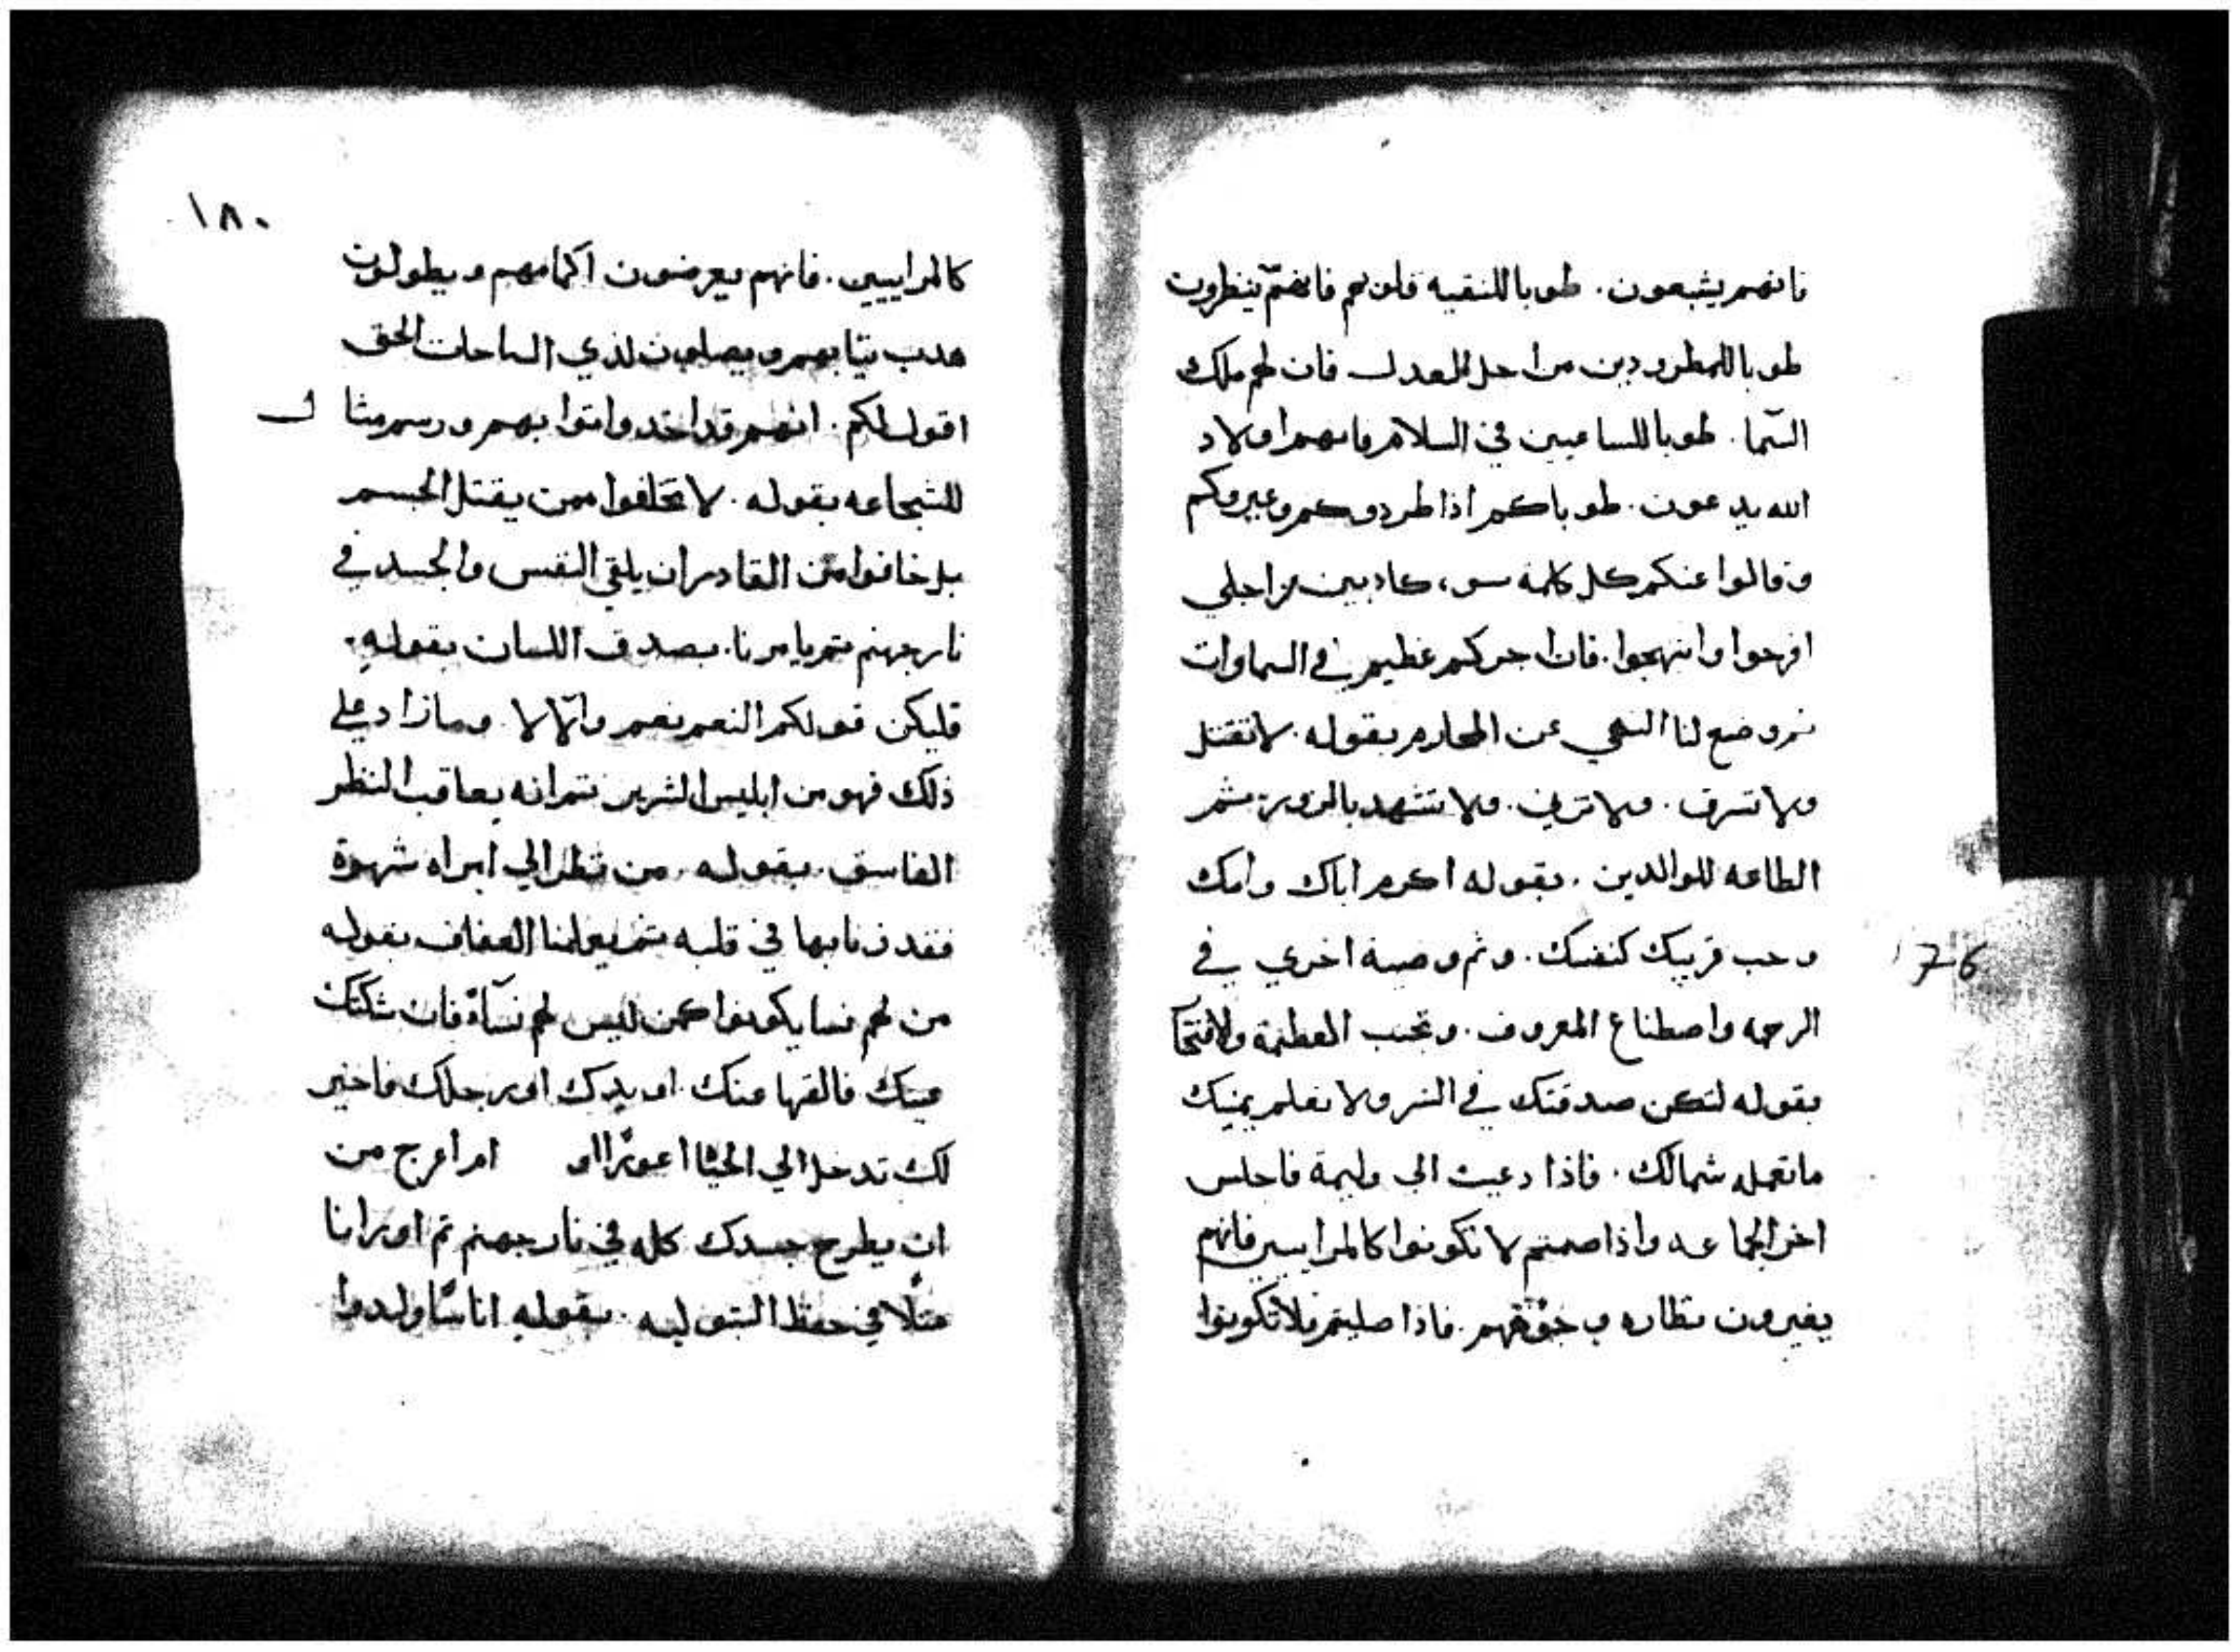 فانهم يشبعون. طوبا للنقيه قلوبهم فانهم ينظرون
طوبا للمطرودين من اجل العدل فان لهم ملك
السما. طوبا للساعيين في السلام فانهم اولاد
الله يدعون. طوباكم اذا طردوكم وعيروكم
وقالوا عنكم كل كلمة سو، كادبين من اجلي
افرحوا وابتهجوا. فان اجركم عظيم في السماوات
ثم وضع لنا النهي عن المحارم بقوله. لا تقتل
ولا تسرق. ولا تزني. ولا تشهد بالزور. ثم
الطاعه للوالدين. بقوله اكرم اباك وامك
وحب قريبك كنفسك. وثم وصية اخري في
الرحمه واصطناع المعروف. وتجنب العظمة
بقوله لتكن صدقتك في السر ولا تعلم يمينك
ما تعمله شمالك. فاذا دعيت الي وليمة فاجلس
اخر الجماعه واذا صمتم لا تكونوا كالمراييين فانهم
يغيرون وجوههم. فاذا صليتم فلا تكونوا
176
١٨٠
كالمراييين. فانهم يعرضون اكمامهم ويطولون
هدب تيابهم ويصلون لذي الساحات الحق
اقول لكم. انهم قد اخدوا توابهم ورسم مثال
للشجاعه بقوله. لا تخافوا ممن يقتل الجسم
بل خافوا من القادر ان يلقي النفس والجسد في
نار جهنم ثم يامرنا. بصدق اللسان بقوله.
فليكن قولكم النعم نعم والا لا. وما زاد علي
ذلك فهو من ابليس الشرير ثم انه يعاقب النظر
الفاسق. بقوله. من نظر الي امراه شهوة
فقد زنا بها في قلبه ثم يعلمنا العفاف بقوله
من لهم نسا يكونوا كمن ليس لهم نساءً فان شكتك
عينك فالقها عنك. او يدك او رجلك فاخير
لك تدخل الي الحياا اعورًا او ام اعرج من
ان يطرح جسدك كله في نار جهنم ثم اورانا
مثلًا في حفظ البتوليه. بقوله اناسًا ولدوا